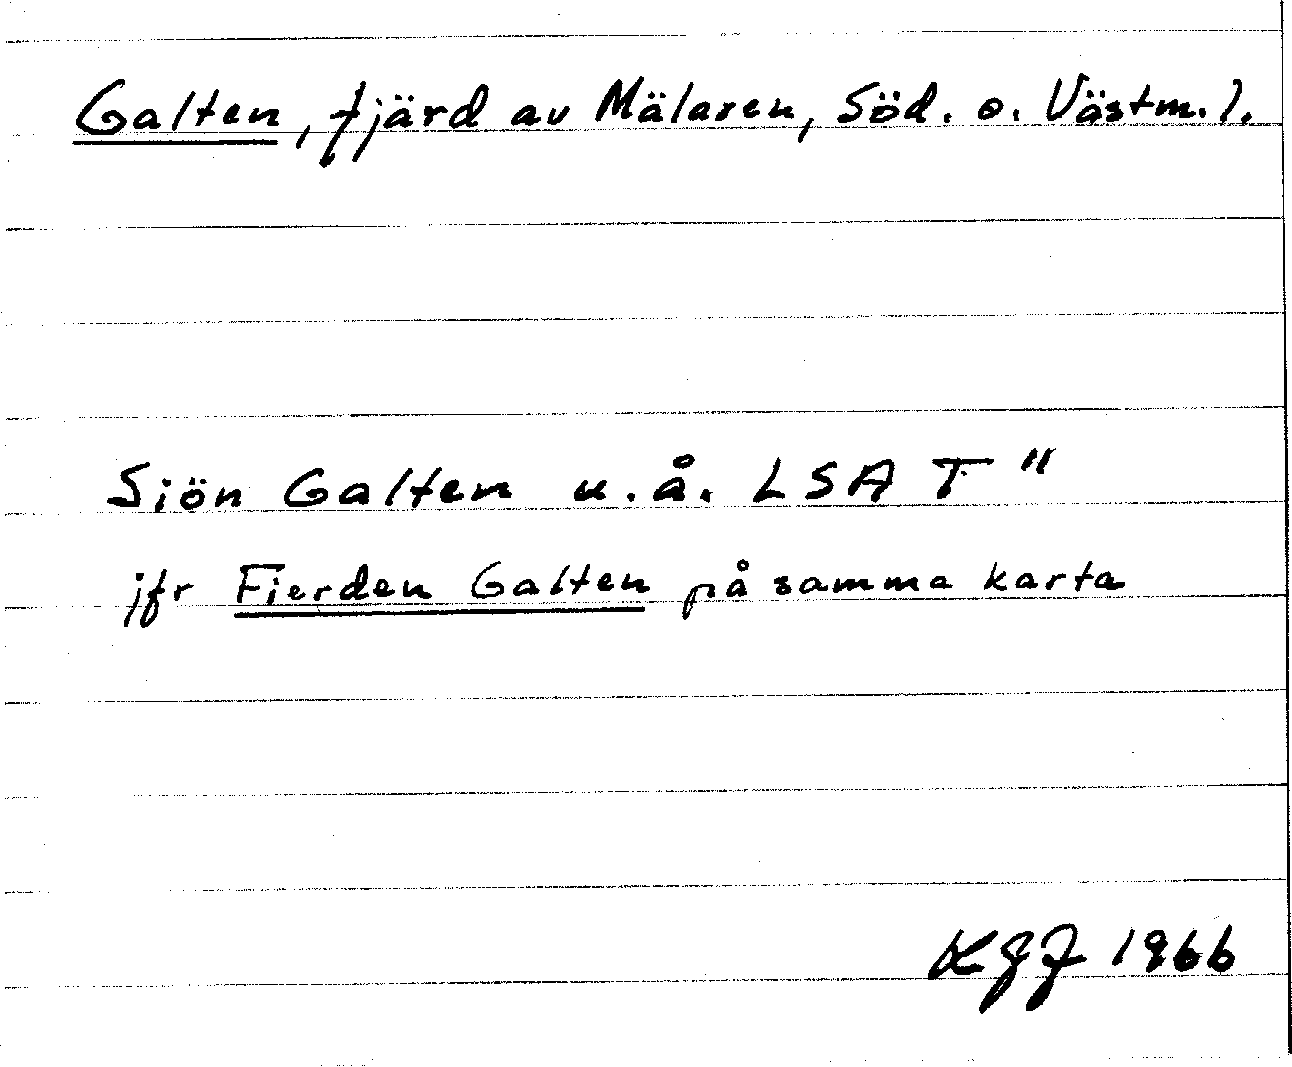 Galten, fjärd av Mälaren, Söd. o. Västm. l.
Sjön Galten u.å. LSA T"
jfr Fierden Galten på samma karta
KGJ 1966